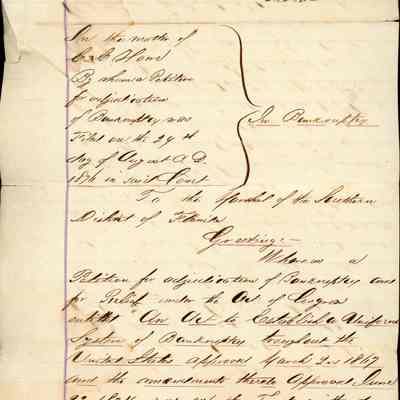 In the matter of
C. C. Howe
By whom a Petition
for adjudication
of Bankruptcy was
Filed on the 29th
day of August A.D.
1874 in said Court
In Bankruptcy
To the Marshal of the Southern
District of Florida
Greeting:-
Whereas a
Petition for adjudication of Bankruptcy and
for Relief under the Act of Congress
entitled "An Act to Establish a Uniform
System of Bankruptcy throughout the
United States approved March 2nd 1867
and the amendments thereto Approved June